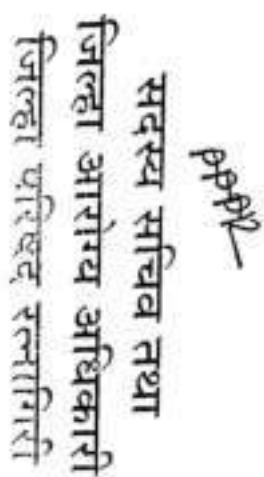 सदस्य सचिव तथा
जिल्हा आरोग्य अधिकारी
जिल्हा परिषद रत्नागिरी